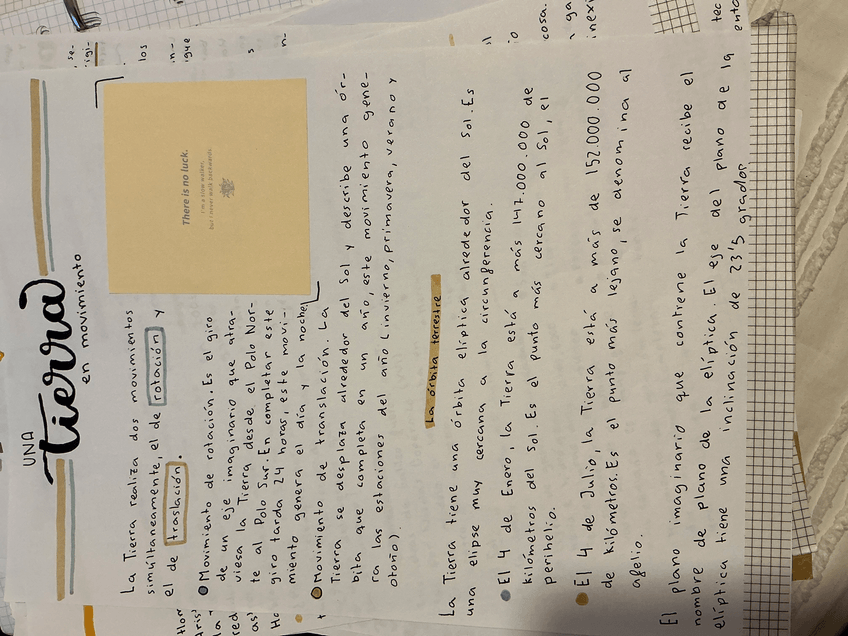 UNA
tierra
en movimiento
La Tierra realiza dos movimientos
simúltaneamente, el de rotación y
el de traslación.
Movimiento de rotación. Es el giro
de un eje imaginario que atra-
viesa la Tierra desde el Polo Nor-
te al Polo Sur. En completar este
giro tarda 24 horas, este movi-
miento genera el día y la noche
There is no luck.
I'm a slow walker,
but I never walk backwards
Movimiento de translación. La
Tierra se desplaza alrededor del Sol y describe una ór-
bita que completa en un año, este movimiento gene-
ra las estaciones del año (invierno, primavera, verano y
otoño).
La órbita terrestre
La Tierra tiene una órbita elíptica alrededor del Sol. Es
una elipse muy cercana a la circunferencia.
El 4 de Enero, la Tierra está a más 147.000.000 de
kilómetros del Sol. Es el punto más cercano al Sol, el
perihelio.
El 4 de Julio, la Tierra está a más de 152.000.000
de kilómetros. Es el punto más lejano, se denomina al
afelio.
El plano imaginario que contiene la Tierra recibe el
nombre de plano de la elíptica. El eje del plano de la
elíptica tiene una inclinación de 23'5 grados